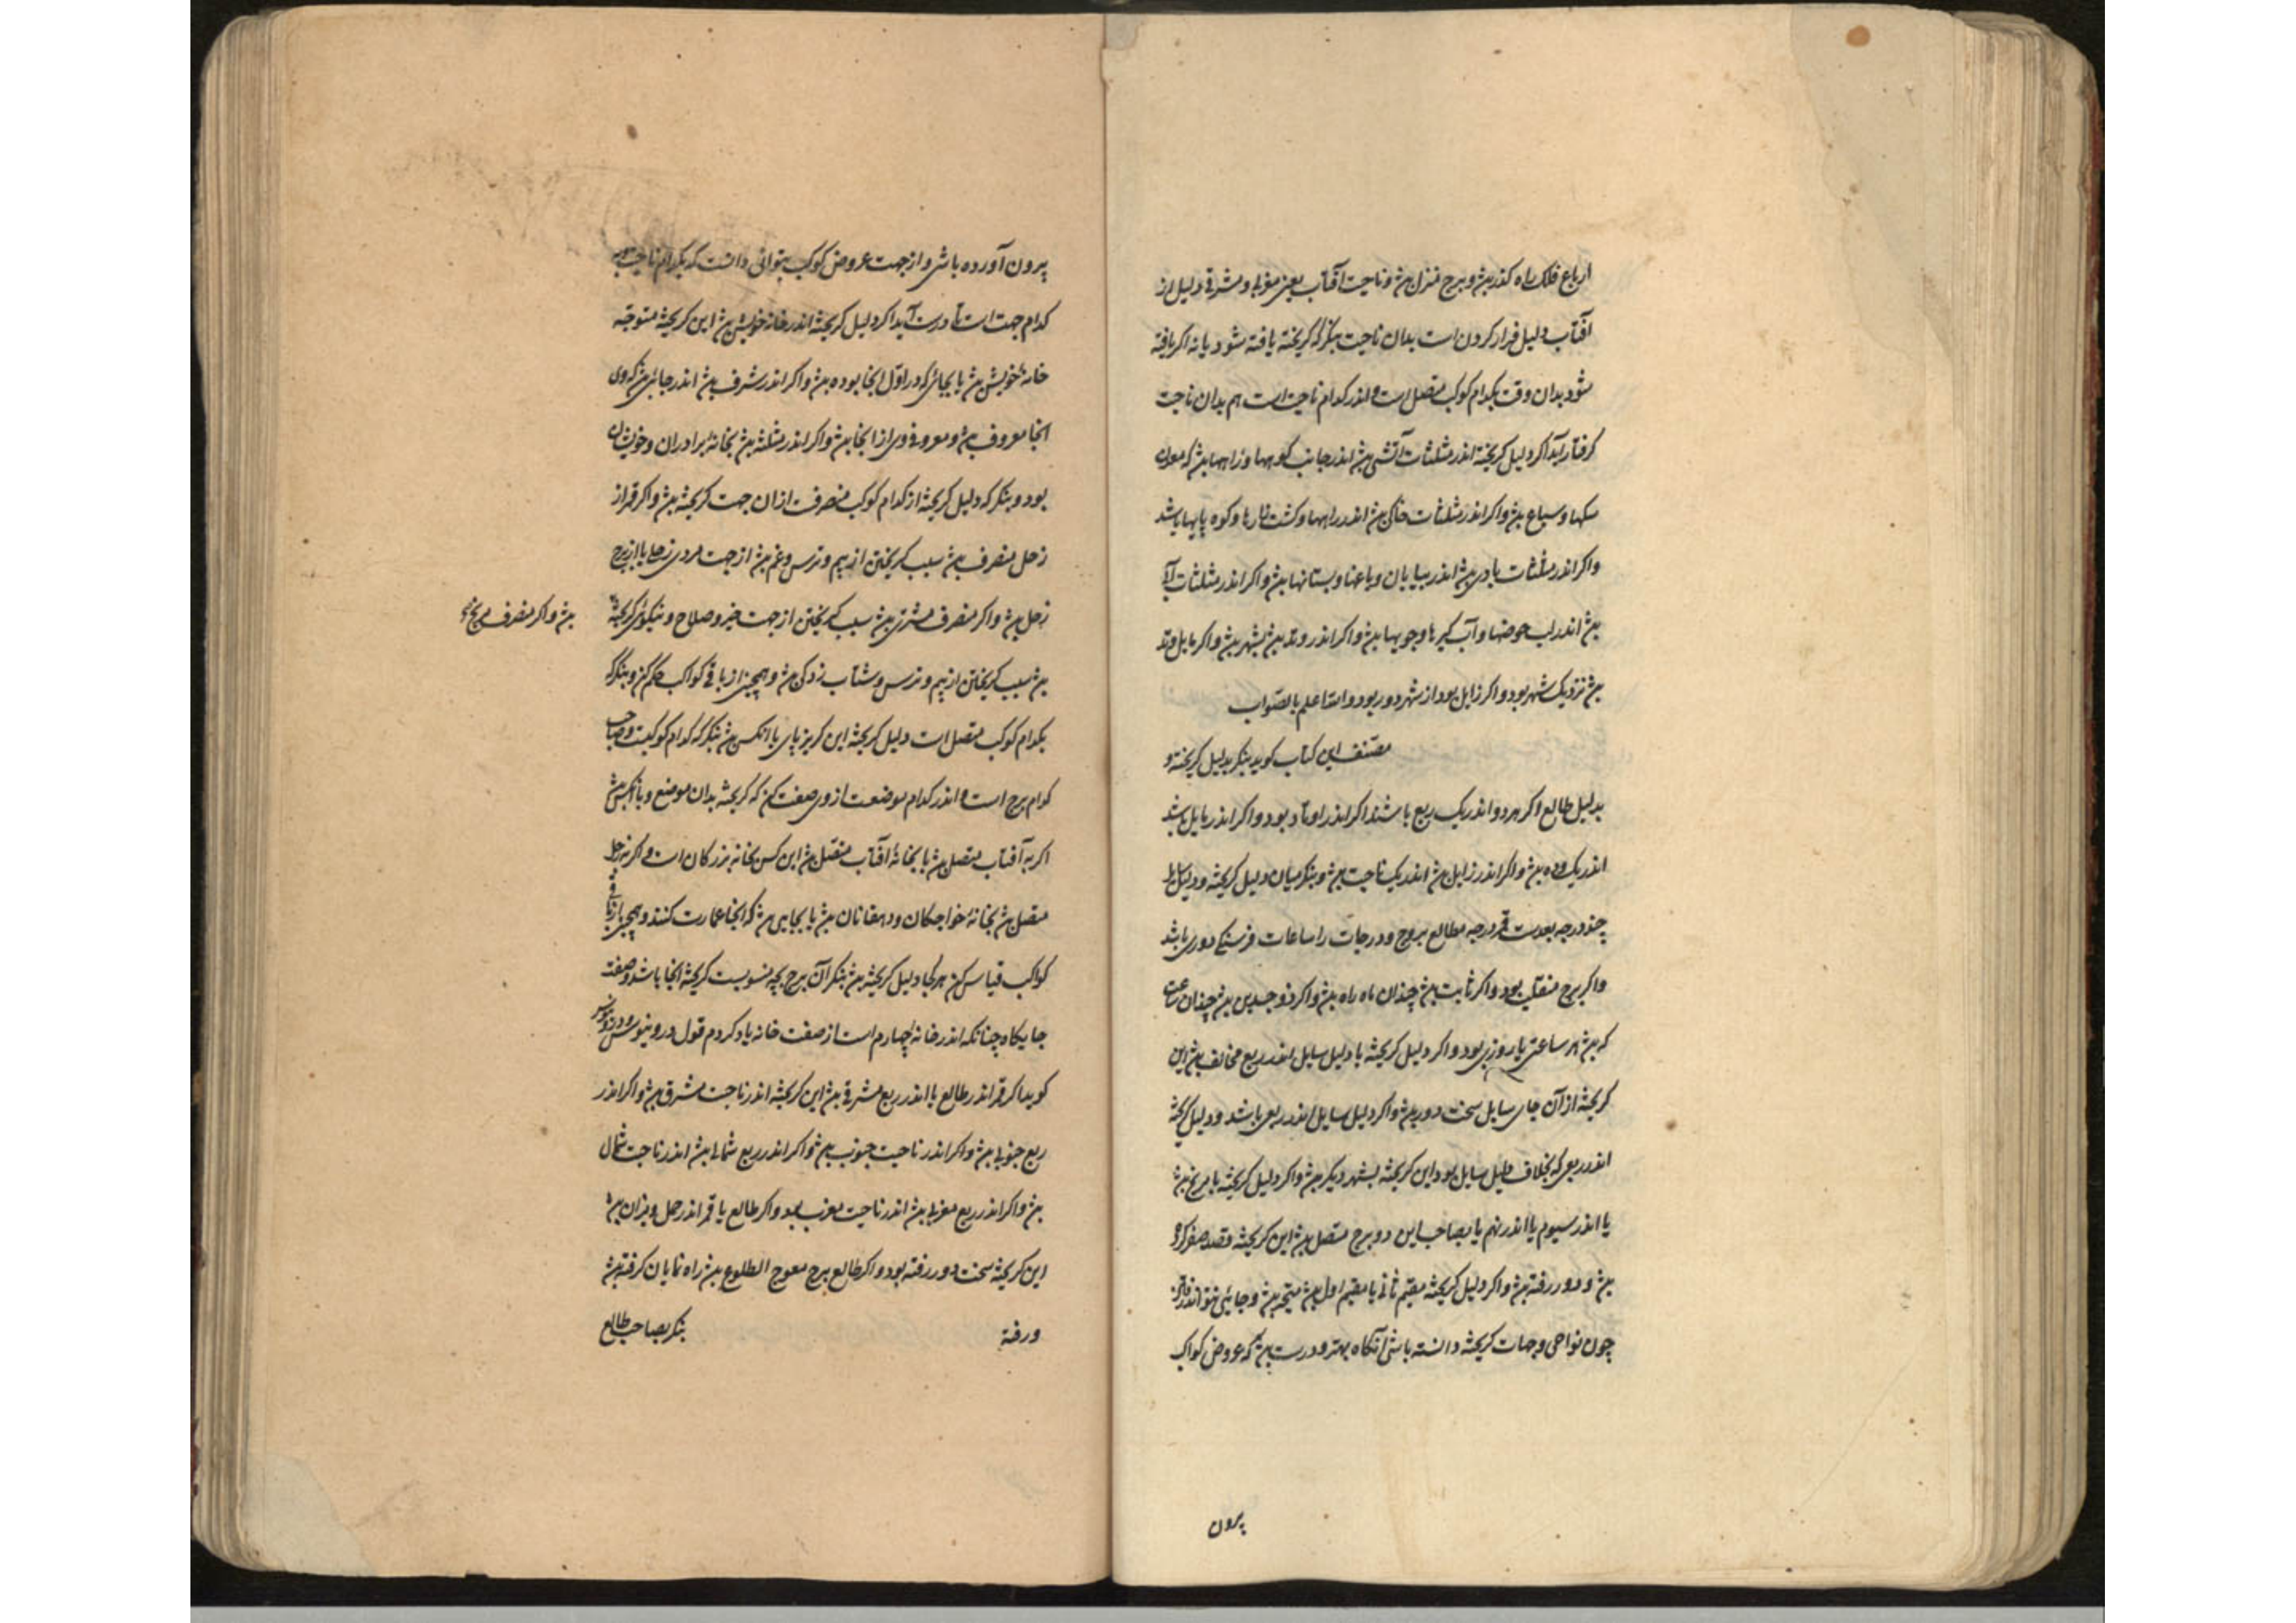 ارباع فلک راه کذر بود و برج منزل بود و ناحیت آفتاب یعنی مغربی و مشرقی دلیل از
آفتاب دلیل فرار کردن است بدان ناحیت بنکر که کریخته یافته شود یا نه اکر یافته
شود بدان وقت بکدام کوکب متصل است و اندر کدام ناحیت است هم بدان ناحیت
کرفتار آید اکر دلیل کریخته اندر مثلثات آتشی بود اندر جانب کوهها و راهها بود که معدن
سکها و سباع بود و اکر اندر مثلثات خاکی بود اندر راهها و کشت زارها و کوه پایها باشد
و اکر اندر مثلثات بادی بود اندر بیابان و باغها و بستانها بود و اکر اندر مثلثات آبی
بود اندر لب حوضها و آب کیرها و جویها بود و اکر اندر وتد بود بشهر بود و اکر مایل وتد
بود نزدیک شهر بود و اکر زایل بود از شهر دور بود والله اعلم بالصواب
مصنف این کتاب کوید بنکر بدلیل کریخته و
بدلیل طالع اکر هر دو اندر یک ربع باشند اکر اندر اوتاد بود و اکر اندر مایل باشد
اندر یک ده بود و اکر اندر زایل بود اندر یک ناحیت بود و بنکر میان دلیل کریخته و دلیل سایل
چند درجه بعدست هر درجه مطالع بروج و درجات را ساعات فرسنکی دوری باشد
و اکر برج منقلب بود و اکر ثابت بود چندان ماه راه بود و اکر ذوجسدین بود چندان ساعت
که بود هر ساعتی یا روزی بود و اکر دلیل کریخته با دلیل سایل اندر ربع مخالف بود این
کریخته از آن جای سایل سخت دور بود و اکر دلیل سایل اندر ربعی باشد و دلیل کریخته
اندر ربعی که بخلاف دلیل سایل بود این کریخته بشهر دیکر بود و اکر دلیل کریخته با مریخ بود
یا اندر سیوم یا اندر نهم یا بصاحب این دو برج متصل بود این کریخته قصد سفر کرده
بود و دور رفته بود و اکر دلیل کریخته مقیم ثانی یا مقیم اول بود متحیر بود و جائی نتواند رفتن
چون نواحی و جهات کریخته دانسته باشی آنکاه بهتر و درست بود که عروض کواکب
بیرون
بیرون آورده باشی و از جهت عروض کوکب بتوانی دانست که بکدام ناحیت
کدام جهت است تا درست آید اکر دلیل کریخته اندر خانه خویش بود این کریخته متوجه
خانهٔ خویش بود یا بجائی که در اول آنجا بوده بود و اکر اندر شرف بود اندر جائی بود که وی
آنجا معروف بود و معروفی وی از آنجا بود و اکر اندر مثلثه بود بخانهٔ برادران و خویشان
بود و بنکر که دلیل کریخته از کدام کوکب منصرفست از آن جهت کریخته بود و اکر قمر از
زحل منصرف بود سبب کریختن از بیم و ترس و غم بود از جهت مردی زحلی یا از برج
زحل بود و اکر منصرف مشتری بود سبب کریختن از جهت خیر و صلاح و نیکوئی کریخته
بود و اکر منصرف مریخ
بود سبب کریختن از بیم و ترس و شتاب زدکی بود و همچنین از باقی کواکب حکم کن و بنکر که
بکدام کوکب متصل است دلیل کریخته این کریز پای با آنکس بود بنکر که کدام کوکبست و صاحب
کدام برج است و اندر کدام موضعست از وی صفت کن که کریخته بدان موضع و با آنکس بود
اکر به آفتاب متصل بود یا بخانهٔ آفتاب متصل بود این کس بخانه بزرکان است و اکر به زحل
متصل بود بخانهٔ خواجکان و دهقانان بود یا بجایی بود که آنجا عمارت کنند و همچنین باقی
کواکب قیاس کن هر کجا دلیل کریخته بود بنکر آن برج بچه منسوبست کریخته آنجا باشد و صفت
جایکاه چنانکه اندر خانه چهارم است از صفت خانه یاد کردم قول دروینوس
کوید اکر قمر اندر طالع یا اندر ربع مشرقی بود این کریخته اندر ناحیت مشرق بود و اکر اندر
ربع جنوبی بود و اکر اندر ناحیت جنوب بود و اکر اندر ربع شمالی بود اندر ناحیت شمال
بود و اکر اندر ربع مغربی بود اندر ناحیت مغرب بود و اکر طالع یا قمر اندر حمل و میزان بود
این کریخته سخت دور رفته بود و اکر طالع برج معوج الطلوع بود راه نمایان کرفته بود
و رفته بنکر بصاحب طالع